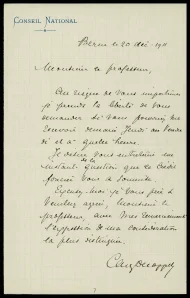 CONSEIL NATIONAL
Berne le 20 déc. 1911
Monsieur le professeur,
Au risque de vous importuner
je prends la liberté de vous
demander si vous pouvez me
recevoir demain jeudi ou vendre
di et à quelle heure.
Je désire vous entretenir un
instant de la question que le crédit
foncier vous a soumise.
Excusez-moi je vous prie &
veuillez agréer, Monsieur le
professeur, avec mes remerciements
l'expression de ma considération
la plus distinguée.